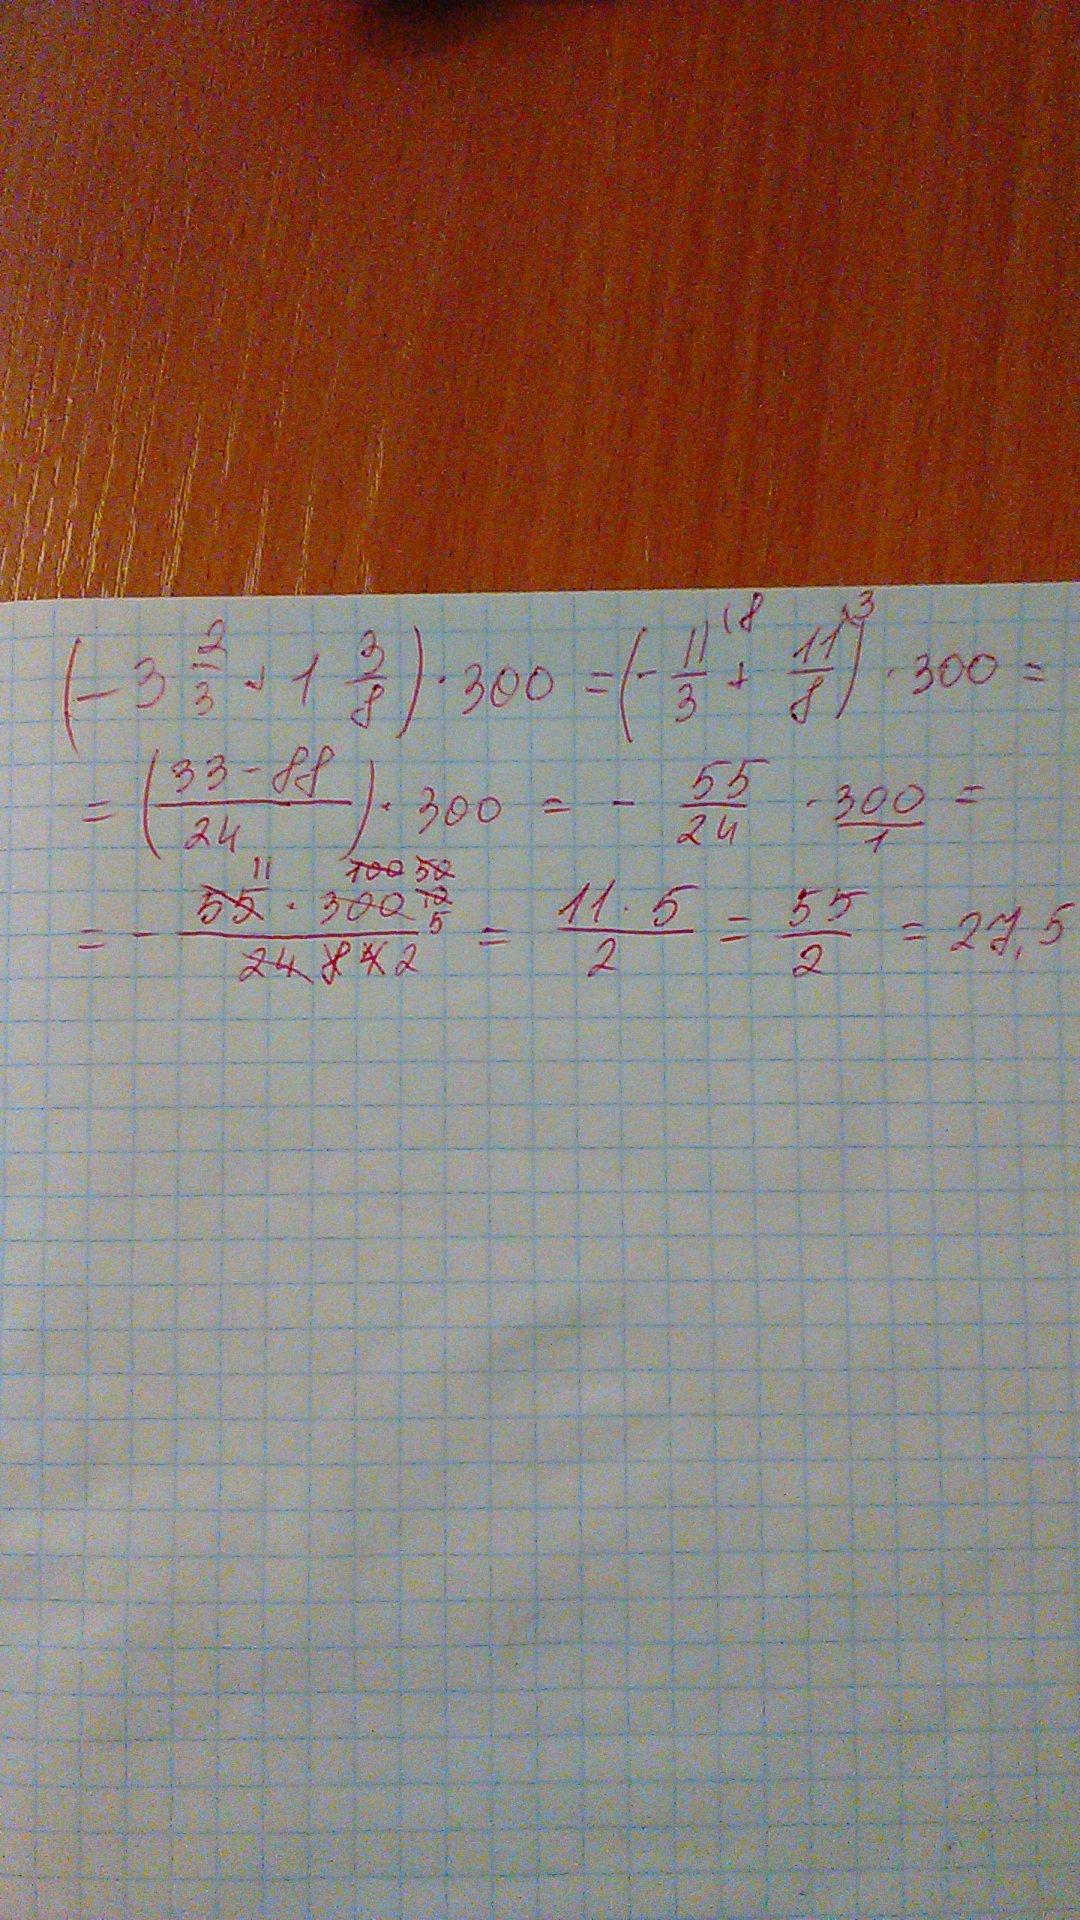 (-3 2/3 + 1 3/8) · 300 = (- 11/3 \8 + 11/8 \3) · 300 =
= (33-88/24) · 300 = - 55/24 · 300/1 =
= - 55 11 · 300 100 50 10 5 / 24 8 4 2 = 11·5/2 = 55/2 = 27,5